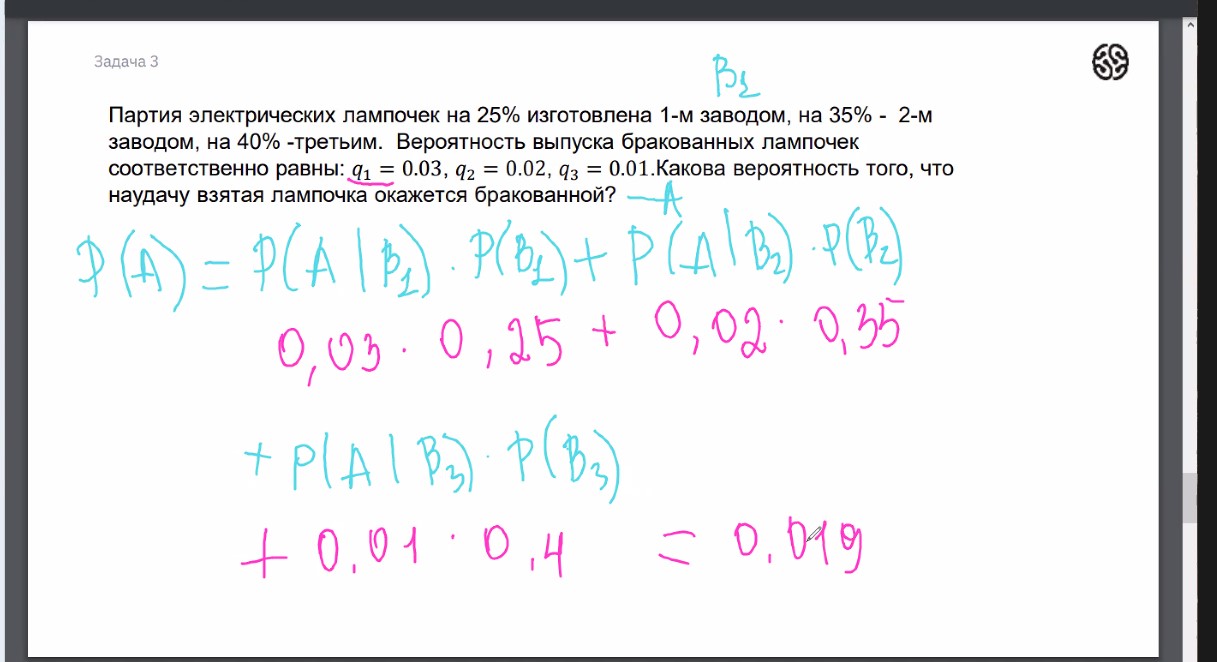 Задача 3
B₁
Партия электрических лампочек на 25% изготовлена 1-м заводом, на 35% - 2-м
заводом, на 40% -третьим. Вероятность выпуска бракованных лампочек
соответственно равны: q₁ = 0.03, q₂ = 0.02, q₃ = 0.01.Какова вероятность того, что
наудачу взятая лампочка окажется бракованной? — A
P(A) = P(A|B₁) · P(B₁) + P(A|B₂) · P(B₂)
0,03 · 0,25 + 0,02 · 0,35
+ P(A|B₃) · P(B₃)
+ 0,01 · 0,4 = 0,019